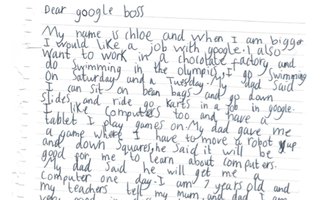 Dear google boss
My name is chloe and when I am bigger
I would like a job with google. I also
want to work in a chocolate factory and
do swimming in the olympics. I go swimming
on Saturday and a Tuesday. My dad said
I can sit on bean bags and go down
slides and ride go karts in a job in google.
I like computers too and have a
tablet I play games on. My dad gave me
a game where I have to move a robot up
and down squares, he said it will be
good for me to learn about computers.
My dad said he will get me a
computer one day. I am 7 years old and
my teachers tell my mum and dad I am
very good in